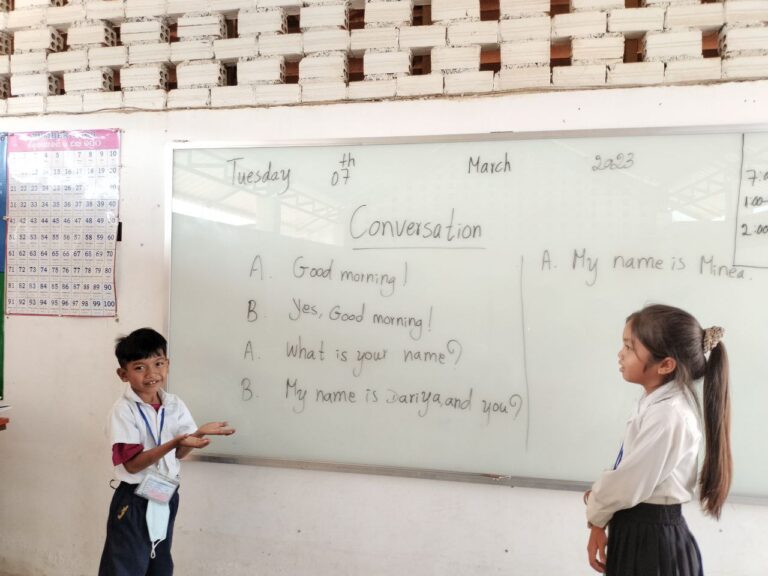 Tuesday 07th March 2023
Conversation
A. Good morning!
B. Yes, Good morning!
A. What is your name?
B. My name is Dariya, and you?
A. My name is Minea.
7:0
1:00-
2:00
NUMBER
4 5 7 8 9 10
31 32 33 34 35 36 37 38 39 40
41 42 43 44 45 46 47 48 49 50
51 52 53 54 55 56 57 58 59 60
61 62 63 64 65 66 67 68 69 70
71 72 73 74 75 76 77 78 79 80
81 82 83 84 85 86 87 88 89 90
91 92 93 94 95 96 97 98 99 100